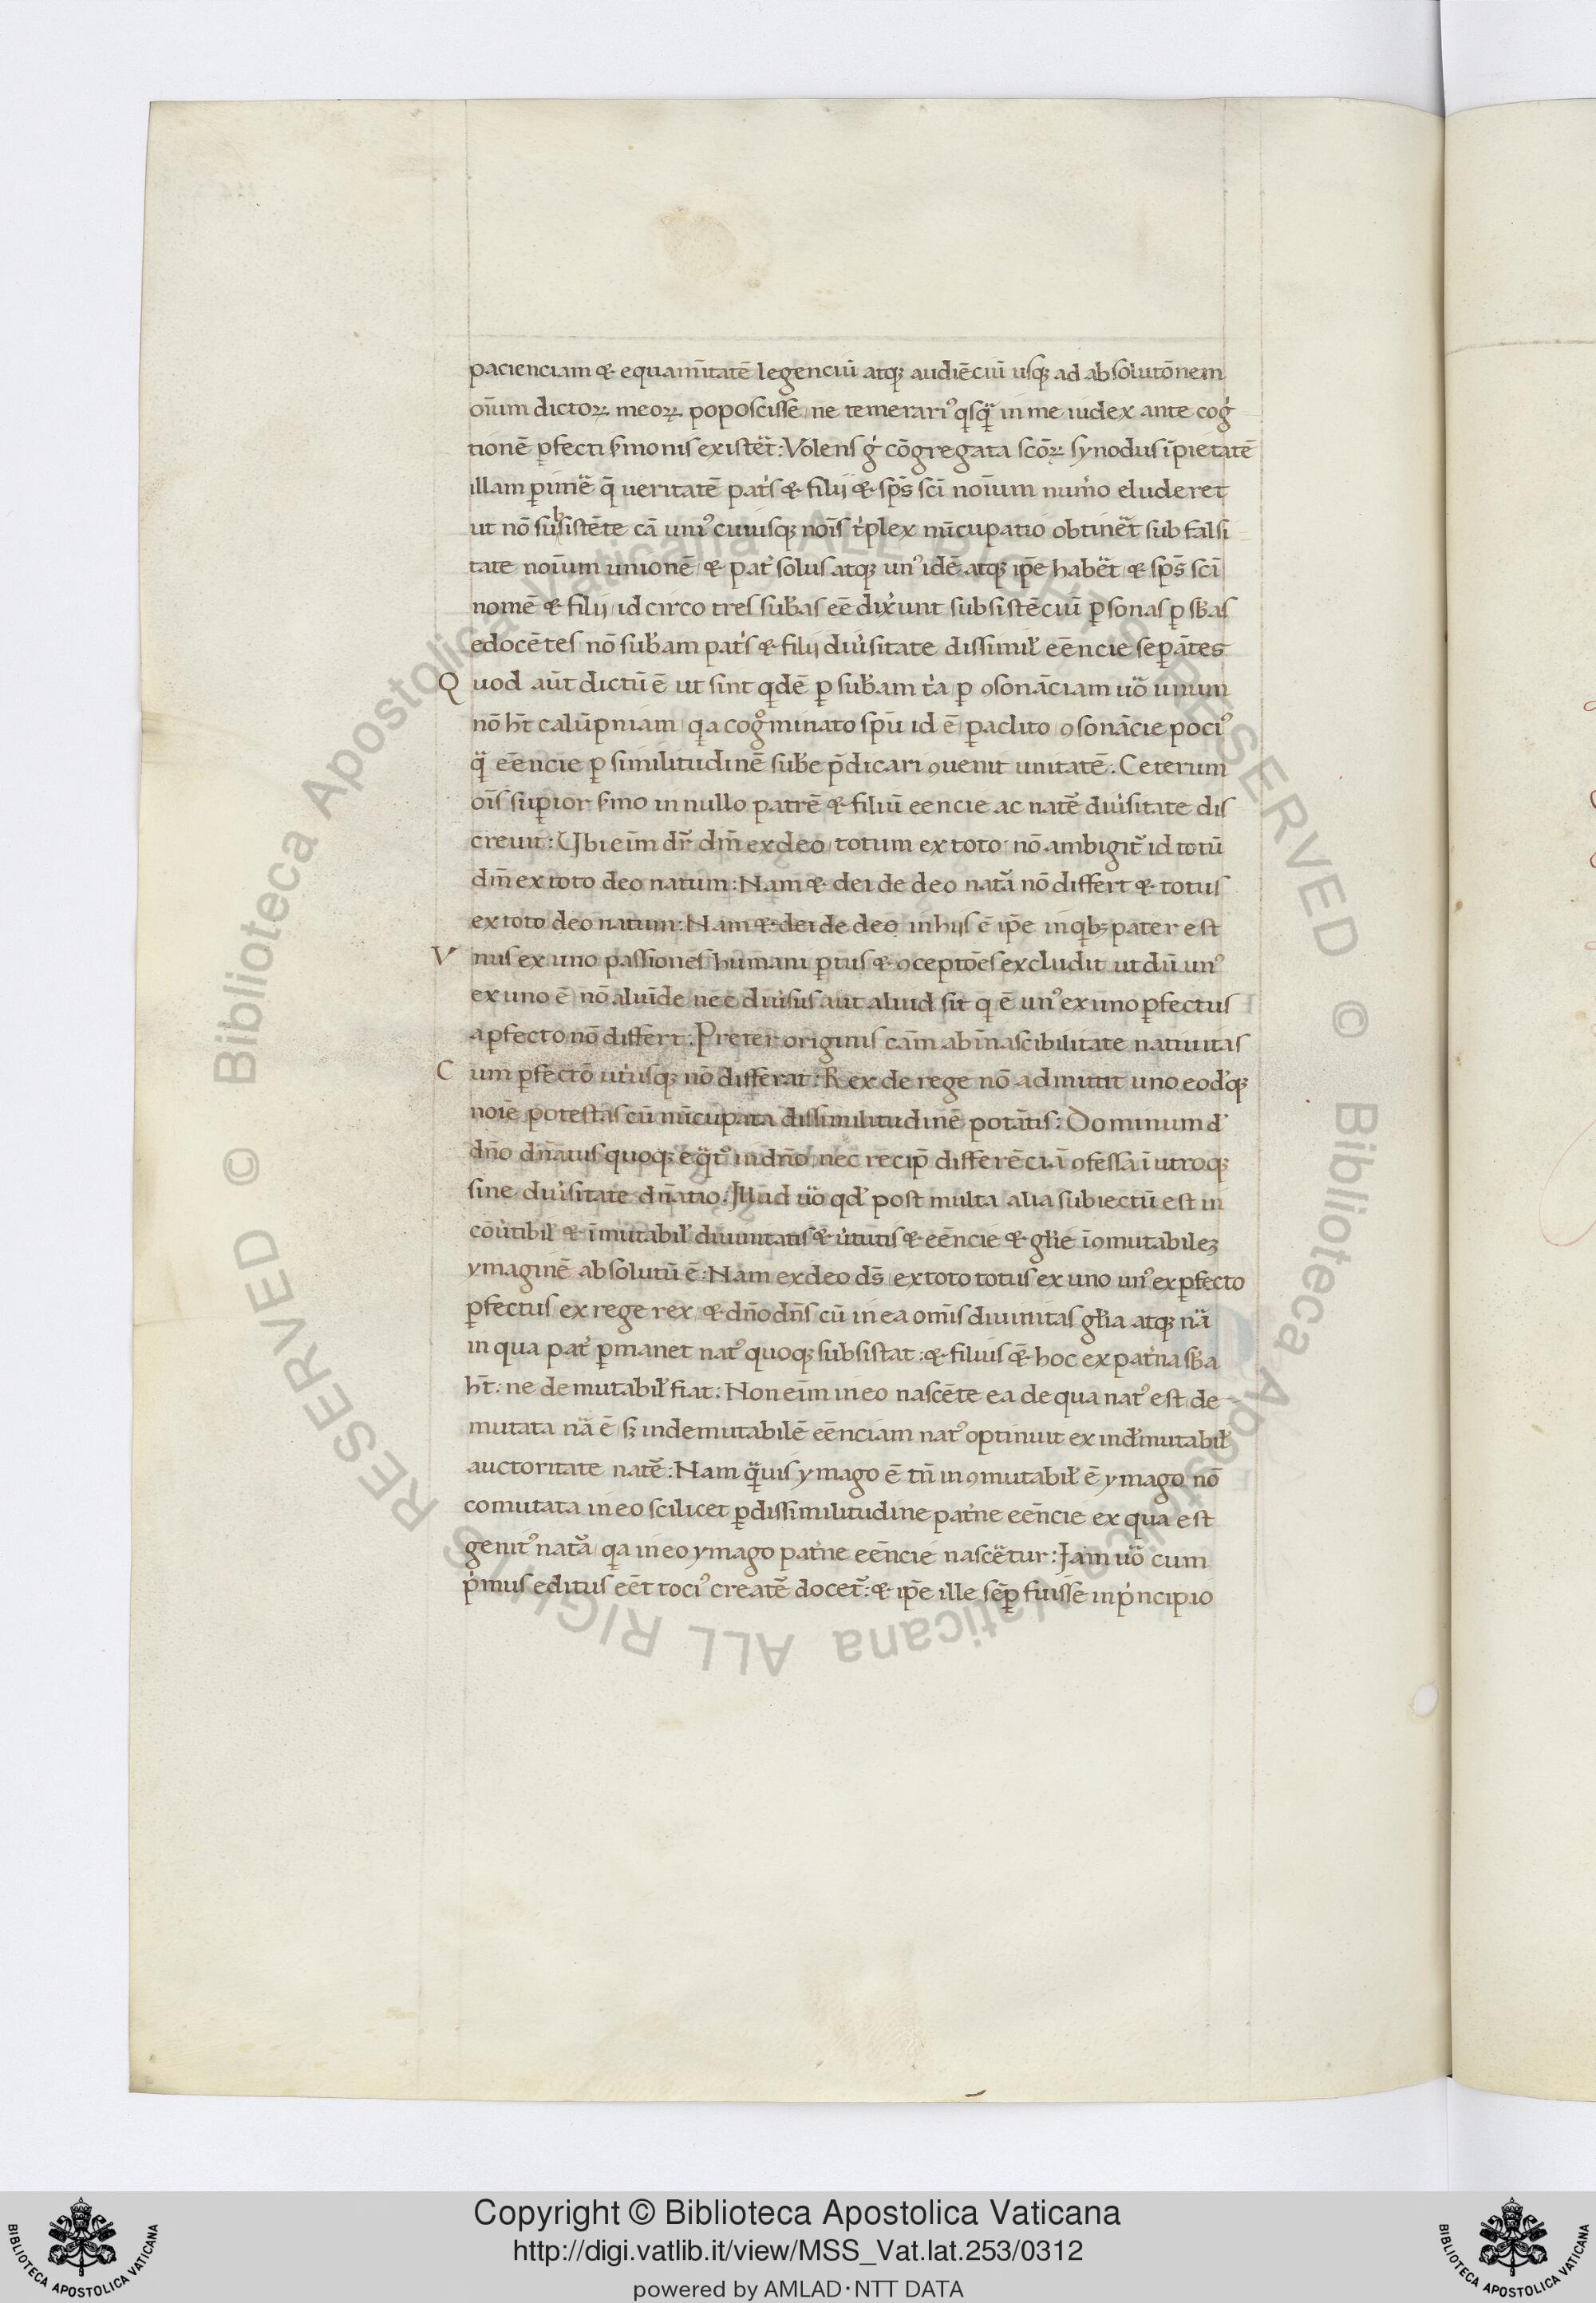 pacienciam & equam̄itatē legenciū atqꝫ audiēciū usqꝫ ad absolutōnem
oīum dictoꝝ meoꝝ poposcisse ne temerariꝰ qͥsqᷓ in me iudex ante cogͥ
tionē ꝑfecti ẜmonis existēt: Volens gͥ cōgregata scōꝝ synodus īpietatē
illam ꝑimē q̄ ueritatē patͥs & filij & sp̄s sc̄i noīum num̄o eluderet
ut nō subsistēte cā uniꝰ cuiusqꝫ noīs tͥplex nūcupatio obtinēt sub falsi
tate noīum unionē & patͥ solus atqꝫ unꝰ idē atqꝫ ip̄e habēt & sp̄s sc̄i
nomē & filij id circo tres sub̄as eē dix̄unt subsistēciū ꝑsonas ꝑ sb̄as
edocētes nō sub̄am patͥs & filij diūsitate dissimil̄ eēncie seꝑātes
Quod aūt dictū ē ut sint qͥdē ꝑ sub̄am tͥa ꝑ ꝯsonāciam uō unum
nō ht̄ calūpniam qͥa cogͦminato spū id ē ꝑaclito ꝯsonācie pociꝰ
qᷓ eēncie ꝑ similitudinē sub̄e p̄dicari ꝯuenit unitatē. Ceterum
oīs suꝑior ẜmo in nullo patrē & filiū eencie ac natē diūsitate dis
creuit: Ubi eīm dr̄ dm̄ ex deo totum ex toto nō ambigit̄ id totū
dm̄ ex toto deo natum: Nam & dei de deo natᷓa nō differt & totus
ex toto deo natum: Nam & dei de deo in hijs ē ip̄e in qͥbꝫ pater est
Vnus ex uno passiones humani ꝑtus & ꝯceptōes excludit ut dū unꝰ
ex uno ē nō aliūde nec diūsus aut aliud sit qͥ ē unꝰ ex uno ꝑfectus
a ꝑfecto nō differt: Preter originis cām ab īnascibilitate natiuitas
Cum ꝑfectō utͥusqꝫ nō differat: Rex de rege nō admittit uno eodꝫqꝫ
noīe potestas cū nūcupata dissimilitudinē potātis: Dominum d̄
dn̄o dn̄atus quoqꝫ eqᷓtꝰ in dn̄o nec recip̄ differēciā ꝯfessa ī utroqꝫ
sine diūsitate dn̄atio. Illud uō qd̄ post multa alia subiectū est in
cōūtibil̄ & īmutabil̄ diuinitatis & ūtutis & eēncie & gl̄ie īꝯmutabileꝫ
ymaginē absolutū ē: Nam ex deo ds̄ ex toto totus ex uno unꝰ ex ꝑfecto
ꝑfectus ex rege rex & dn̄o dn̄s cū in ea om̄is diuinitas gl̄ia atqꝫ nᷓa
in qua patͥ ꝑmanet natꝰ quoqꝫ subsistat: & filius & hoc ex patͥna sb̄a
ht̄: ne demutabil̄ fiat: Non eīm in eo nascēte ea de qua natꝰ est de
mutata nᷓa ē sꝫ indemutabilē eēnciam natꝰ optinuit ex indꝫmutabil̄
auctoritate natē: Nam qᷓuis ymago ē tn̄ inꝯmutabil̄ ē ymago nō
comutata in eo scilicet ꝑ dissimilitudine patͥne eēncie ex qua est
genitꝰ natᷓa qͥa in eo ymago patͥne eēncie nascētur: Jam uō cum
pͥmus editus eēt tociꝰ creatē docet̄: & ip̄e ille sēꝑ fuisse in pͥncipio
Copyright © Biblioteca Apostolica Vaticana
http://digi.vatlib.it/view/MSS_Vat.lat.253/0312
powered by AMLAD·NTT DATA